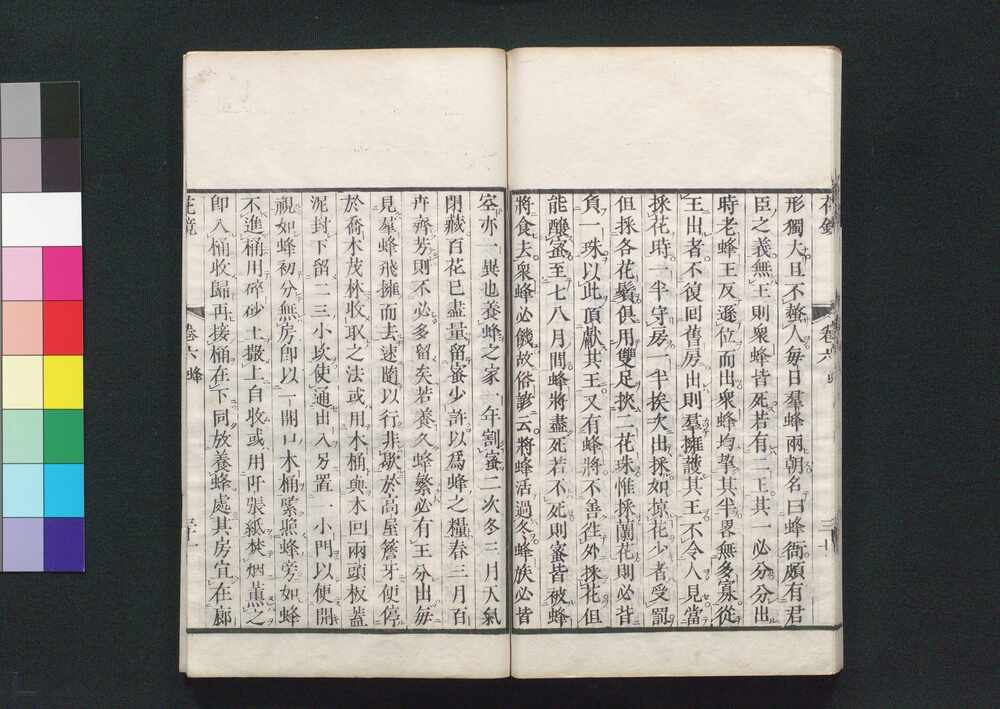 形獨大且不螫人每日羣蜂兩朝名曰蜂衙頗有君
臣之義無王則衆蜂皆死若有二王其一必分分出
時老蜂王反遜位而出衆蜂均挈其半畧無多寡從
王出者不復回舊房出則羣擁護其王不令人見當
採花時一半守房一半挨次出採如掠花少者受罰
但採各花鬚俱用雙足挾二花珠惟採蘭花則必背
負一珠以此頂獻其王又有蜂將不善徃外採花但
能釀蜜至七八月間蜂將盡死若不死則蜜皆被蜂
將食去衆蜂必饑故俗諺云將蜂活過冬蜂族必皆
空亦一異也養蜂之家一年割蜜二次冬三月天氣
閉藏百花已盡量留蜜少許以爲蜂之糧春三月百
卉齊芳則不必多留矣若養久蜂繁必有王分出每
見羣蜂飛擁而去速隨以行非歇於高屋簷牙便停
於喬木茂林收取之法或用木桶與木回兩頭板蓋
泥封下留二三小坎使通出入另置一小門以便開
視如蜂初分無房卽以一開口木桶緊照蜂旁如蜂
不進桶用碎砂土撒上自收或用阡張紙焚烟薰之
卽入桶收歸再接桶在下同放養蜂處其房宜在廊
花鏡
卷六 蜂